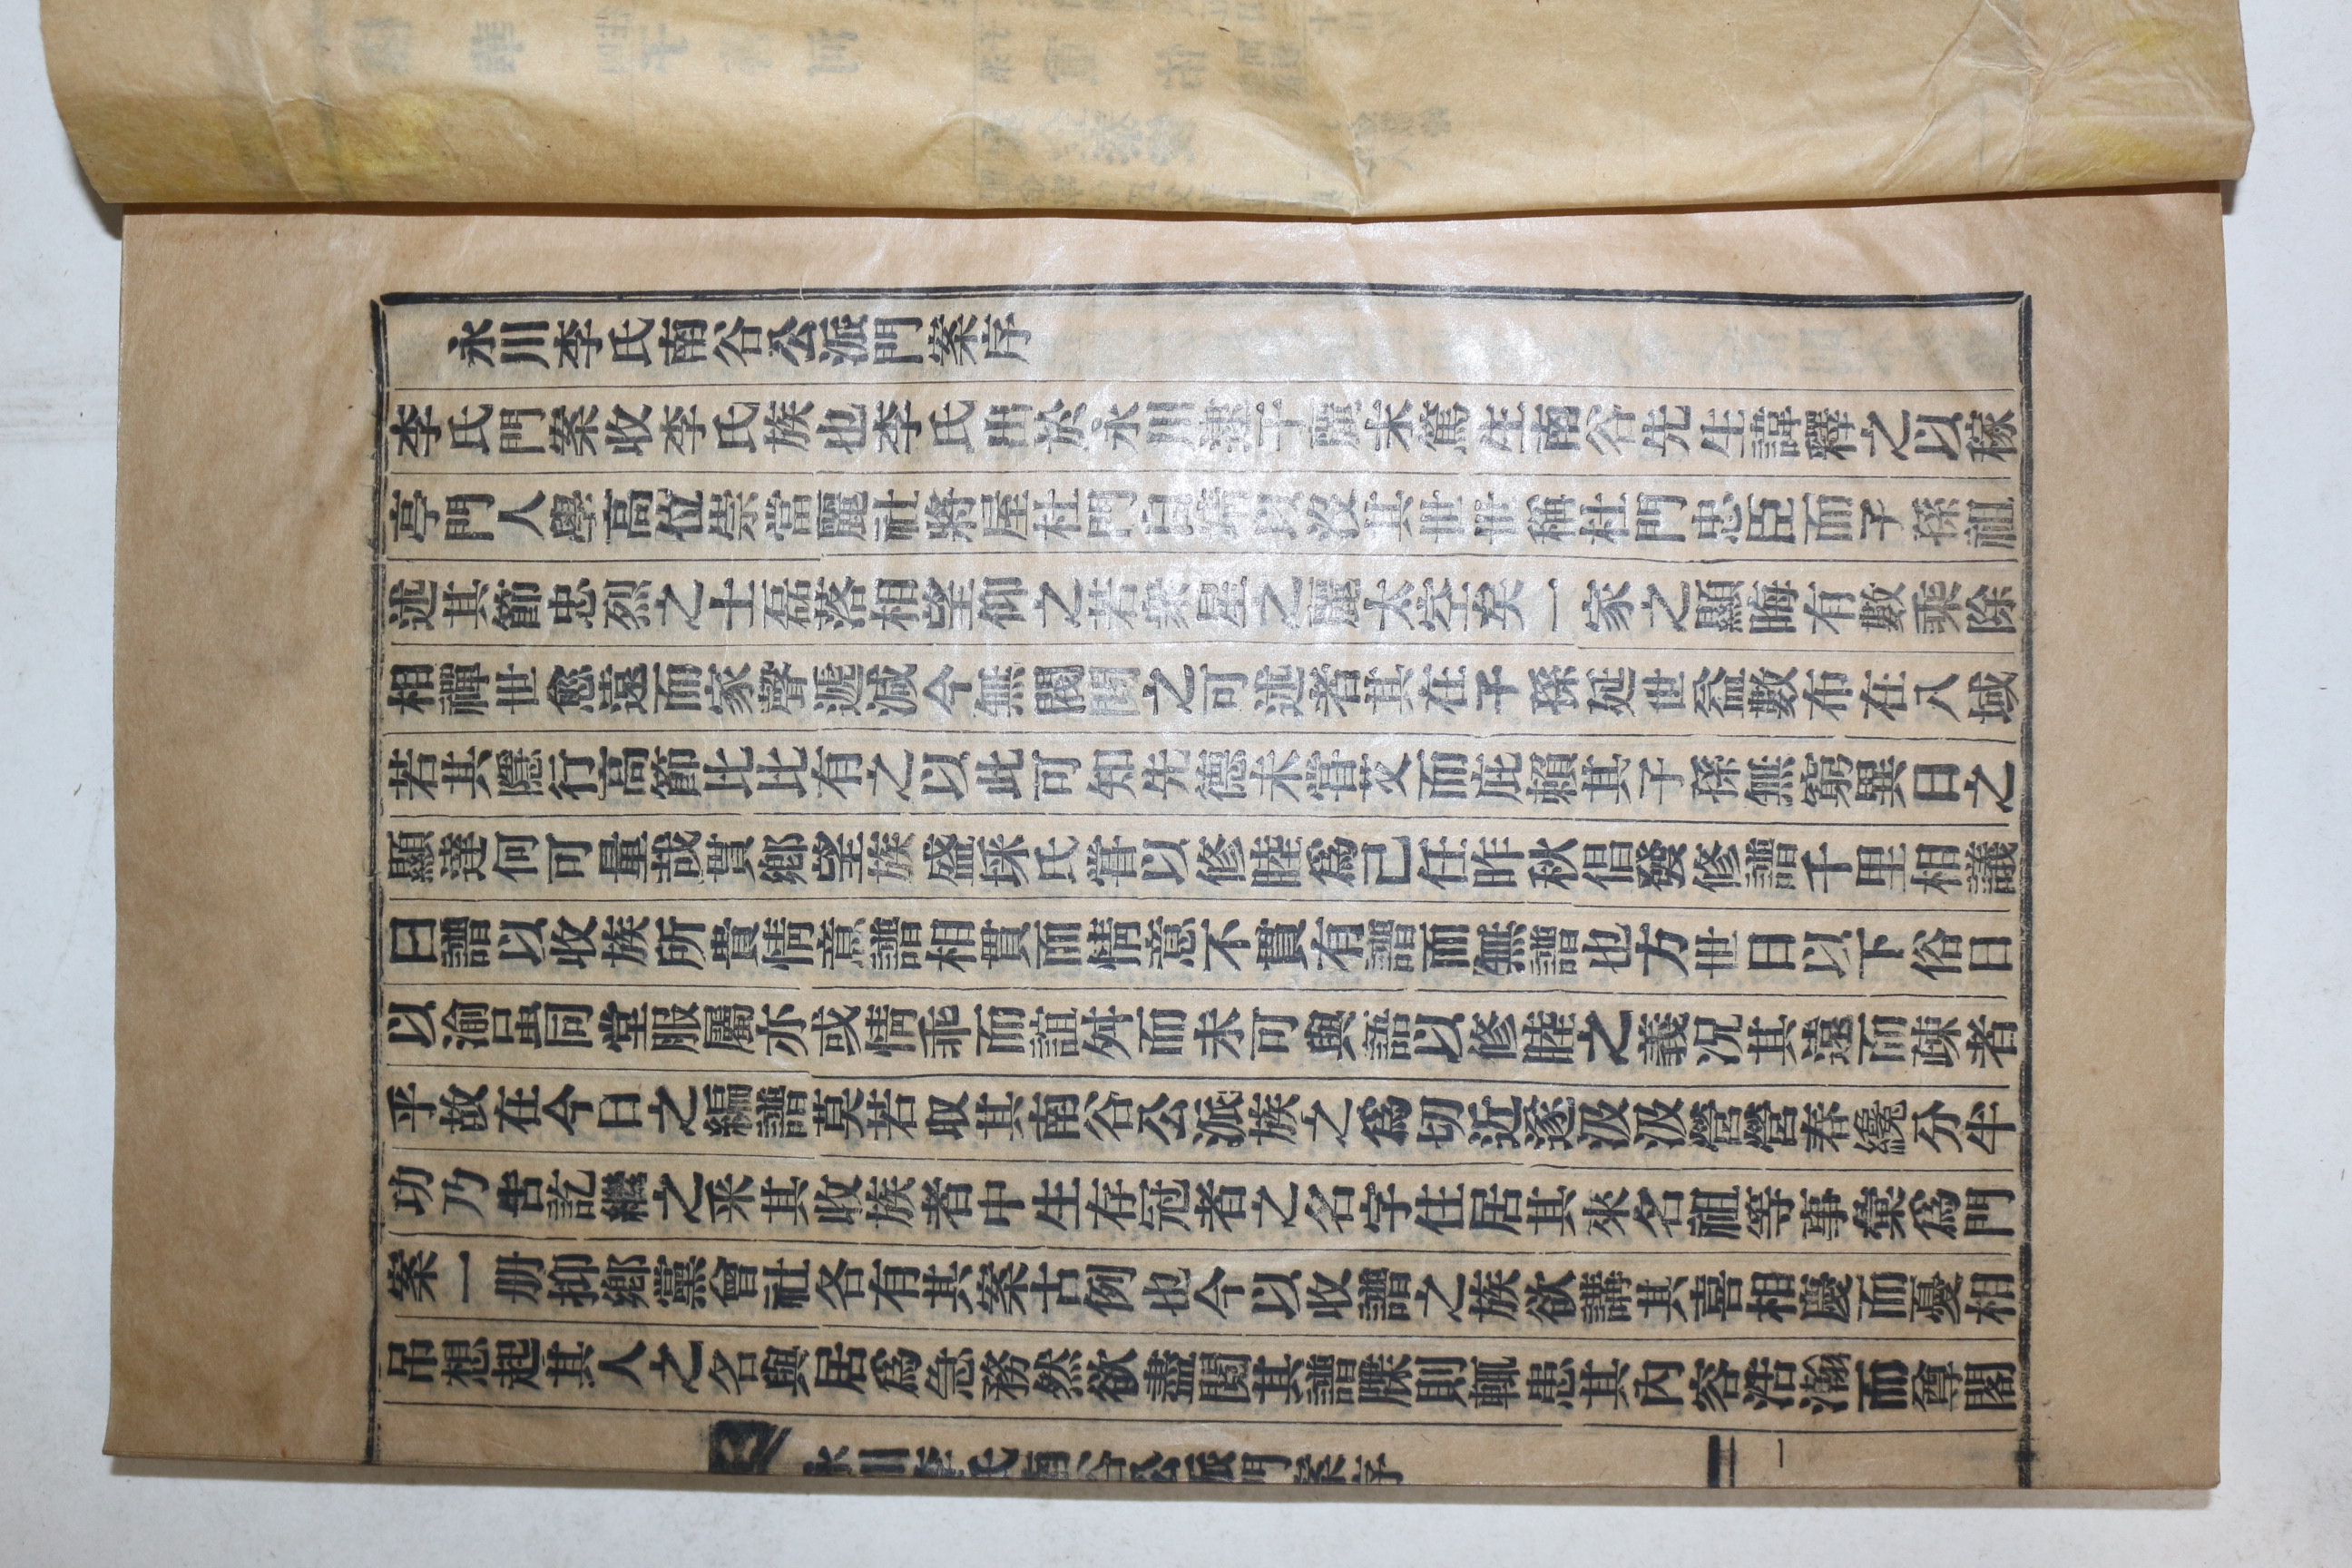 永川李氏南谷公派門案序
李氏門案收李氏族也李氏出於永川逮于麗末篤生南谷先生諱釋之以稼
亭門人學高位崇當麗社將屋杜門自靖以沒其世世稱杜門忠臣而子孫祖
述其節忠烈之士磊落相望仰之若衆星之麗太空矣一家之顯晦有數乘除
相禪世愈遠而家聲遞減今無閥閱之可述者其在子孫延世益數布在八域
若其隱行高節比比有之以此可知先德未嘗艾而庇賴其子孫無窮異日之
顯達何可量哉貫鄉望族盛埰氏嘗以修睦爲己任昨秋倡發修譜千里相議
曰譜以收族所貴情意譜相貫而情意不貫有譜而無譜也方世日以下俗日
以渝同堂服屬亦或情乖而誼舛而未可與語以修睦之義况其遠而疎者
乎故在今日之編譜莫若取其南谷公派族之爲切近遂汲汲營營春纔分半
功乃告訖繼之采其收族者中生存冠者之名字住居其來名祖等事彙爲門
案一册抑鄉黨會社各有其案古例也今以收譜之族欲講其喜相慶而憂相
吊想起其人之名與居爲急務然欲盡閱其譜牒則輒患其內容浩瀚而尊閣
永川李氏南谷公派門案序
一